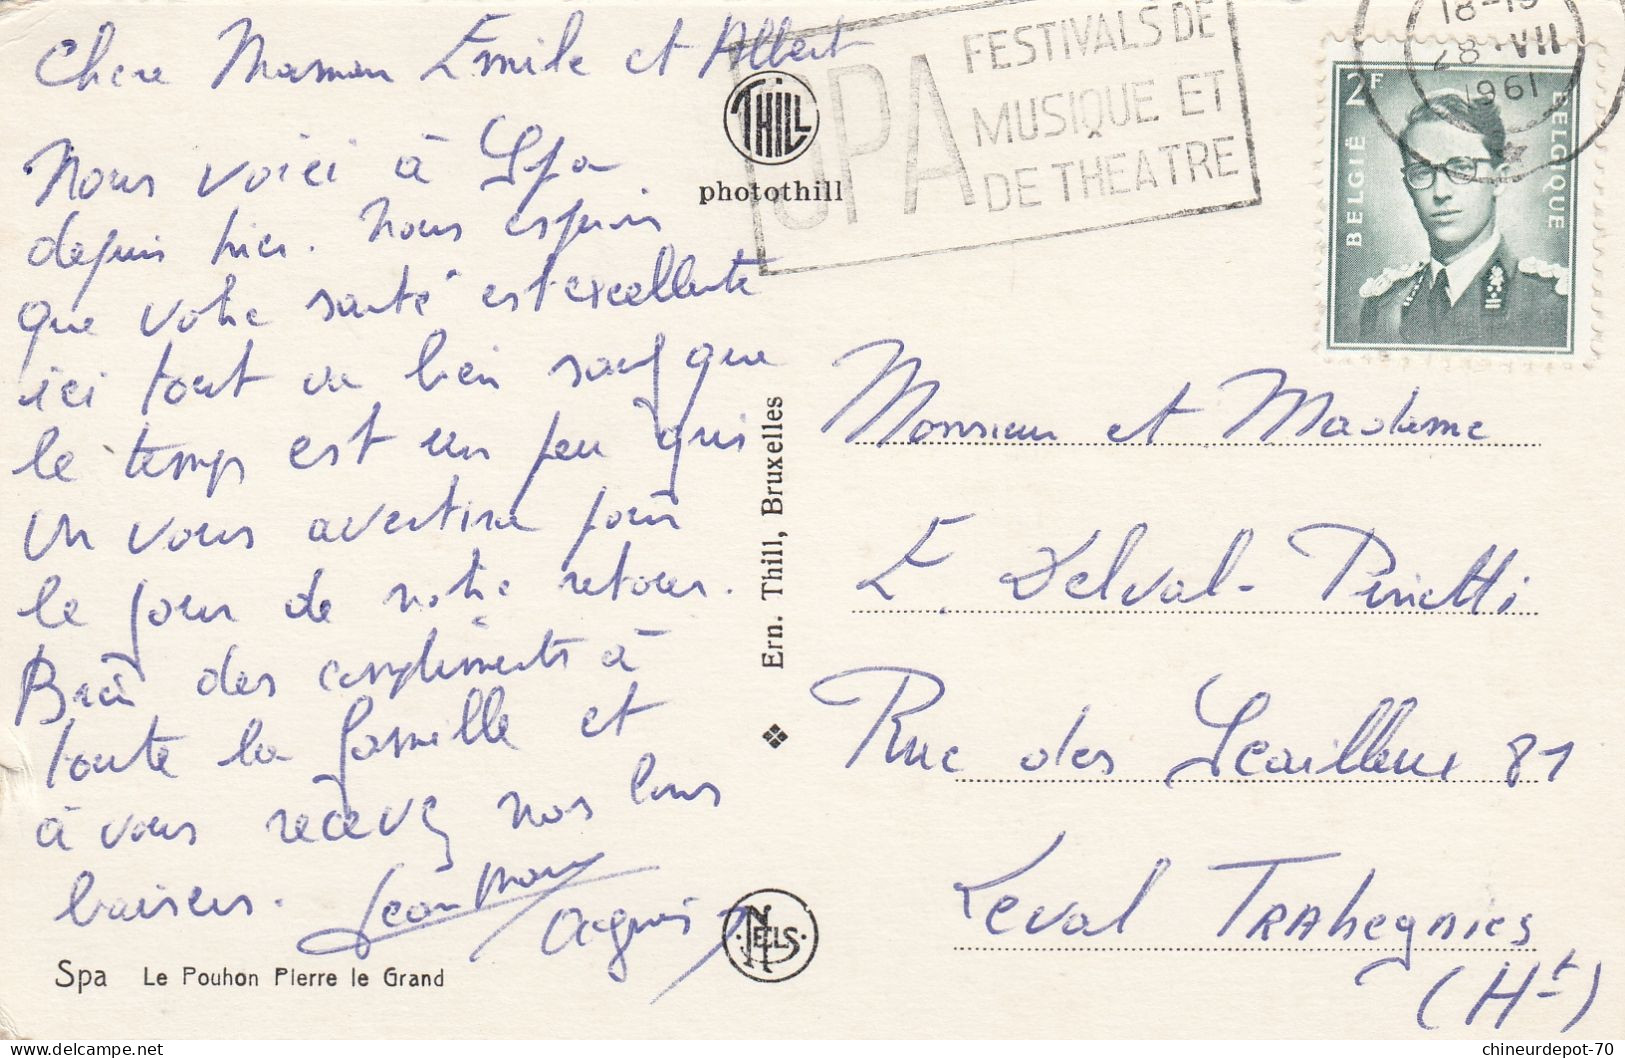 Chere Maman Emile et Albert
Nous voici à Spa
depuis hier. Nous espérons
que votre santé est excellente
ici tout va bien sauf que
le temps est un peu gris
On vous avertira pour
le jour de notre retour.
Bien des compliments à
toute la famille et
à vous recevez nos bons
baisers. Jean Mary
Agnès
Spa Le Pouhon Pierre le Grand
THILL
photothill
Ern. Thill, Bruxelles
NELS
SPA
FESTIVALS DE
MUSIQUE ET
DE THEATRE
18-19
28 VII
1961
2F
BELGIË
BELGIQUE
Monsieur et Madame
E. Delval-Pinetti
Rue des Scailleux 81
Leval TRAhegnies
(Ht)
chineurdepot-70